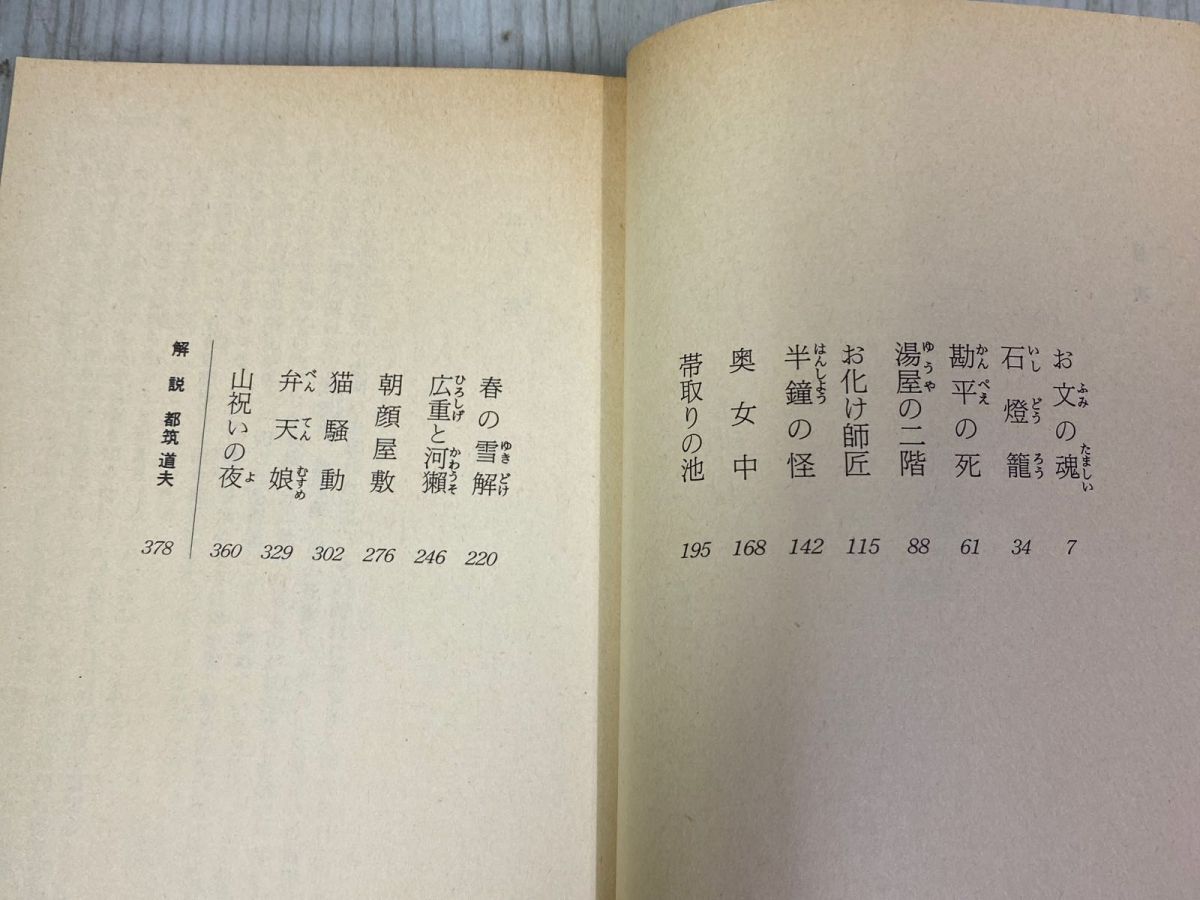 お文の魂 7
石燈籠 34
勘平の死 61
湯屋の二階 88
お化け師匠 115
半鐘の怪 142
奥女中 168
帯取りの池 195
春の雪解 220
広重と河獺 246
朝顔屋敷 276
猫騒動 302
弁天娘 329
山祝いの夜 360
解説 都筑道夫 378